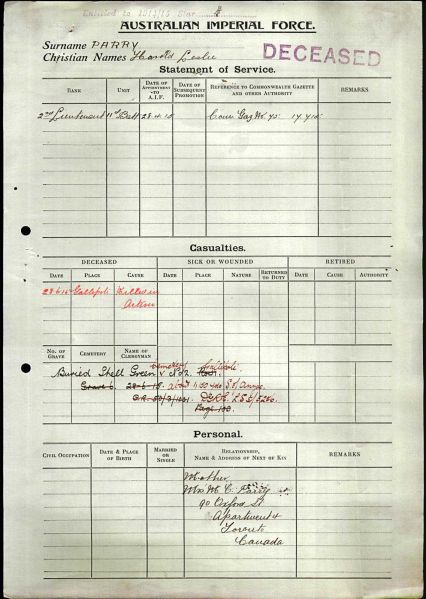 Entitled to 1914/15 Star
AUSTRALIAN IMPERIAL FORCE.
Surname PARRY
Christian Names Harold Leslie
DECEASED
Statement of Service.
RANK
UNIT
DATE OF APPOINTMENT TO A.I.F.
DATE OF SUBSEQUENT PROMOTION
REFERENCE TO COMMONWEALTH GAZETTE AND OTHER AUTHORITY
REMARKS
2nd Lieutenant 11th Batt 28.4.15 Com Gaz No 45
Casualties.
DECEASED
SICK OR WOUNDED
RETIRED
DATE
PLACE
CAUSE
DATE
PLACE
NATURE
RETURNED TO DUTY
DATE
CAUSE
AUTHORITY
28.6.15 Gallipoli Killed in
Action
NO. OF GRAVE
CEMETERY
NAME OF CLERGYMAN
REMARKS
Cemetery Gallipoli
Buried Shell Green
Grave 6. 28-6-15. about 1100 yds
Personal.
CIVIL OCCUPATION
DATE & PLACE OF BIRTH
MARRIED OR SINGLE
RELATIONSHIP, NAME & ADDRESS OF NEXT OF KIN
REMARKS
Mother
Mrs M. C. Parry
90 Oxford St
Apartment 4
Toronto
Canada